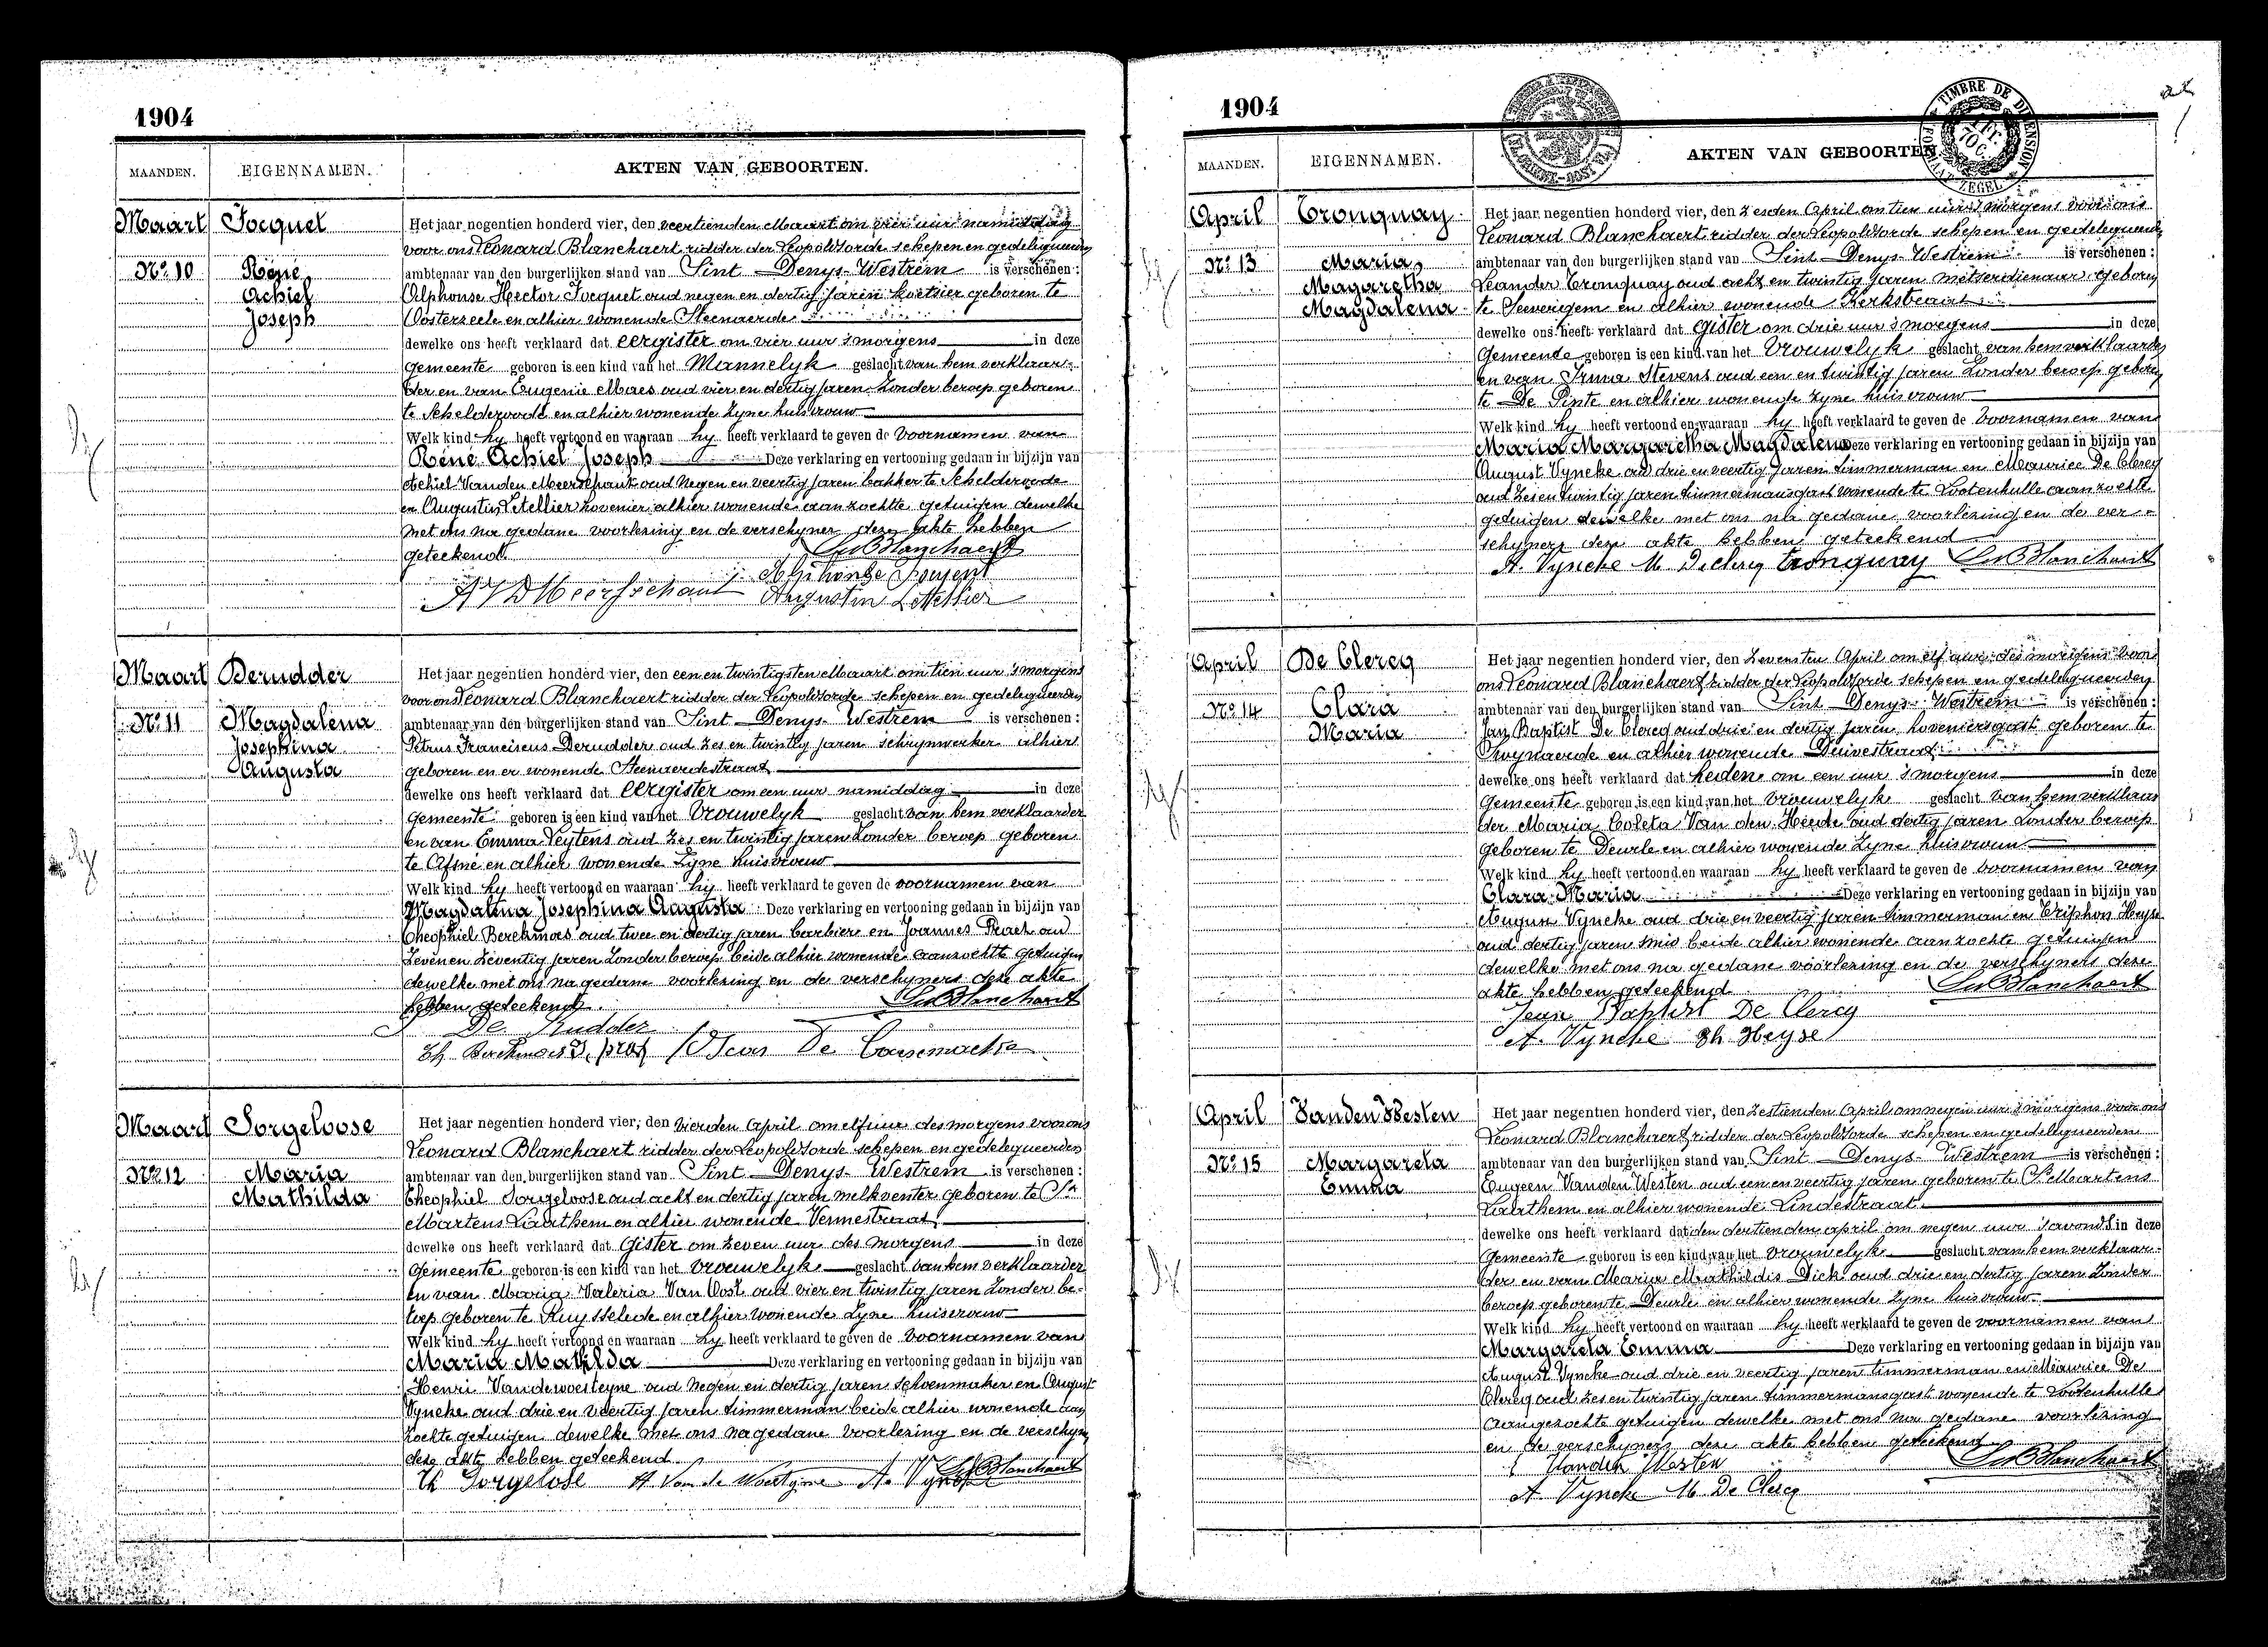 1904
MAANDEN. EIGENNAMEN. AKTEN VAN GEBOORTEN.
Maart Focquet Het jaar negentien honderd vier, den veertienden Maart om vier uur namiddag
voor ons Leonard Blanchaert ridder der Leopoldsorde schepen en gedelegueerden
No 10 René ambtenaar van den burgerlijken stand van Sint Denys-Westrem is verschenen :
Achiel Alphonse Hector Focquet oud negen en dertig jaren koetsier geboren te
Joseph Oosterzeele en alhier wonende Steenaerde
dewelke ons heeft verklaard dat eergister om vier uur 's morgens in deze
gemeente geboren is een kind van het Mannelyk geslacht van hem verklaar-
der en van Eugenie Maes oud vier en dertig jaren zonder beroep geboren
te Schelderode en alhier wonende zyne huisvrouw
Welk kind hy heeft vertoond en waaraan hy heeft verklaard te geven de voornamen van
René Achiel Joseph Deze verklaring en vertooning gedaan in bijzijn van
Achiel Vanden Meerschaut oud negen en veertig jaren bakker te Schelderode
en Augustin Letellier hovenier alhier wonende aanzochte getuigen dewelke
met ons na gedane voorlezing en de verschyner deze akte hebben
geteekend Leo Blanchaert
Alphonse
A VD Meersschaut Augustin Letellier
Maart Derudder Het jaar negentien honderd vier, den een en twintigsten Maart om tien uur 's morgens
voor ons Leonard Blanchaert ridder der Leopoldsorde schepen en gedelegueerden
No 11 Magdalena ambtenaar van den burgerlijken stand van Sint Denys-Westrem is verschenen :
Josephina Petrus Franciscus Derudder oud zes en twintig jaren schrynwerker alhier
Augusta geboren en er wonende Steenaerdestraat
dewelke ons heeft verklaard dat eergister om een uur namiddag in deze
gemeente geboren is een kind van het vrouwelyk geslacht van hem verklaarder
en van Emma Leytens oud zes en twintig jaren zonder beroep geboren
te Afsné en alhier wonende zyne huisvrouw
Welk kind hy heeft vertoond en waaraan hy heeft verklaard te geven de voornamen van
Magdalena Josephina Augusta Deze verklaring en vertooning gedaan in bijzijn van
Theophiel Berckmoes oud twee en dertig jaren barbier en Joannes Praet oud
zeven en zeventig jaren zonder beroep beide alhier wonende aanzochte getuigen
dewelke met ons na gedane voorlezing en de verschyners deze akte
hebben geteekend. Leo Blanchaert
De Rudder
Th. Berckmoes
Maart Sorgeloose Het jaar negentien honderd vier, den vierden April om elf uur des morgens voor ons
Leonard Blanchaert ridder der Leopoldsorde schepen en gedelegueerden
No 12 Maria ambtenaar van den burgerlijken stand van Sint Denys-Westrem is verschenen :
Mathilda Theophiel Sorgeloose oud acht en dertig jaren melkventer geboren te St
Martens Laathem en alhier wonende Vennestraat
dewelke ons heeft verklaard dat gister om zeven uur des morgens in deze
gemeente geboren is een kind van het vrouwelyk geslacht van hem verklaarder
en van Maria Valeria Van Oost oud vier en twintig jaren zonder be-
roep geboren te Ruysselede en alhier wonende zyne huisvrouw
Welk kind hy heeft vertoond en waaraan hy heeft verklaard te geven de voornamen van
Maria Mathilda Deze verklaring en vertooning gedaan in bijzijn van
Henri Vandewoesteyne oud negen en dertig jaren schoenmaker en August
Vyncke oud drie en veertig jaren timmerman beide alhier wonende aan
zochte getuigen dewelke met ons na gedane voorlezing en de verschyn
deze akte hebben geteekend Leo Blanchaert
Th Sorgelose H Van de Woestyne A. Vyncke
1904
TIMBRE DE DIMENSION
FORMAAT ZEGEL
MAANDEN. EIGENNAMEN. AKTEN VAN GEBOORTEN.
April Tronquay Het jaar negentien honderd vier, den zesden April om tien uur 's morgens voor ons
Leonard Blanchaert ridder der Leopoldsorde schepen en gedelegueerden
No 13 Maria ambtenaar van den burgerlijken stand van Sint Denys-Westrem is verschenen :
Magaretha Leander Tronquay oud acht en twintig jaren metserdienaar geboren
Magdalena te Seevergem en alhier wonende Kerkstraat
dewelke ons heeft verklaard dat gister om drie uur 's morgens in deze
Gemeente geboren is een kind van het vrouwelyk geslacht van hem verklaarder
en van Irma Stevens oud een en twintig jaren zonder beroep geboren
te De Pinte en alhier wonende zyne huisvrouw
Welk kind hy heeft vertoond en waaraan hy heeft verklaard te geven de voornamen van
Maria Margaretha Magdalena Deze verklaring en vertooning gedaan in bijzijn van
August Vyncke oud drie en veertig jaren timmerman en Maurice De Clercq
oud zes en twintig jaren timmermansgast wonende te Lootenhulle aanzochte
getuigen dewelke met ons na gedane voorlezing en de ver-
schyners deze akte hebben geteekend
A. Vyncke M Declercq tronquay Leo Blanchaert
April De Clercq Het jaar negentien honderd vier, den zevensten April om elf uur des morgens voor
ons Leonard Blanchaert ridder der Leopoldsorde schepen en gedelegueerden
No 14 Clara ambtenaar van den burgerlijken stand van Sint Denys-Westrem is verschenen :
Maria Jan Baptist De Clercq oud drie en dertig jaren hoveniersgast geboren te
Zwynaerde en alhier wonende Duivestraat
dewelke ons heeft verklaard dat heden om een uur 's morgens in deze
Gemeente geboren is een kind van het vrouwelyk geslacht van hem verklaar
der Maria Coleta Van den Heede oud dertig jaren zonder beroep
geboren te Deurle en alhier wonende zyne huisvrouw
Welk kind hy heeft vertoond en waaraan hy heeft verklaard te geven de voornamen van
Clara Maria Deze verklaring en vertooning gedaan in bijzijn van
August Vyncke oud drie en veertig jaren timmerman en Triphon Heyse
oud dertig jaren smid beide alhier wonende aanzochte getuigen
dewelke met ons na gedane voorlezing en de verschyners deze
akte hebben geteekend Leo Blanchaert
Jean Baptist De Clercq
A. Vyncke Th Heyse
April Vanden Westen Het jaar negentien honderd vier, den zestienden April om negen uur 's morgens voor ons
Leonard Blanchaert ridder der Leopoldsorde schepen en gedelegueerden
No 15 Margareta ambtenaar van den burgerlijken stand van Sint Denys-Westrem is verschenen :
Emma Eugeen Vanden Westen oud een en veertig jaren geboren te St Maartens
Laathem en alhier wonende Lindestraat
dewelke ons heeft verklaard dat den dertienden april om negen uur 's avonds in deze
Gemeente geboren is een kind van het vrouwelyk geslacht van hem verklaar-
der en van Maria Mathildis Dick oud drie en dertig jaren zonder
beroep geboren te Deurle en alhier wonende zyne huisvrouw
Welk kind hy heeft vertoond en waaraan hy heeft verklaard te geven de voornamen van
Margareta Emma Deze verklaring en vertooning gedaan in bijzijn van
August Vyncke oud drie en veertig jaren timmerman en Maurice De
Clercq oud zes en twintig jaren timmermansgast wonende te Lootenhulle
aangezochte getuigen dewelke met ons na gedane voorlezing
en de verschyners deze akte hebben geteekend
Vanden Westen Leo Blanchaert
A. Vyncke M De Clercq